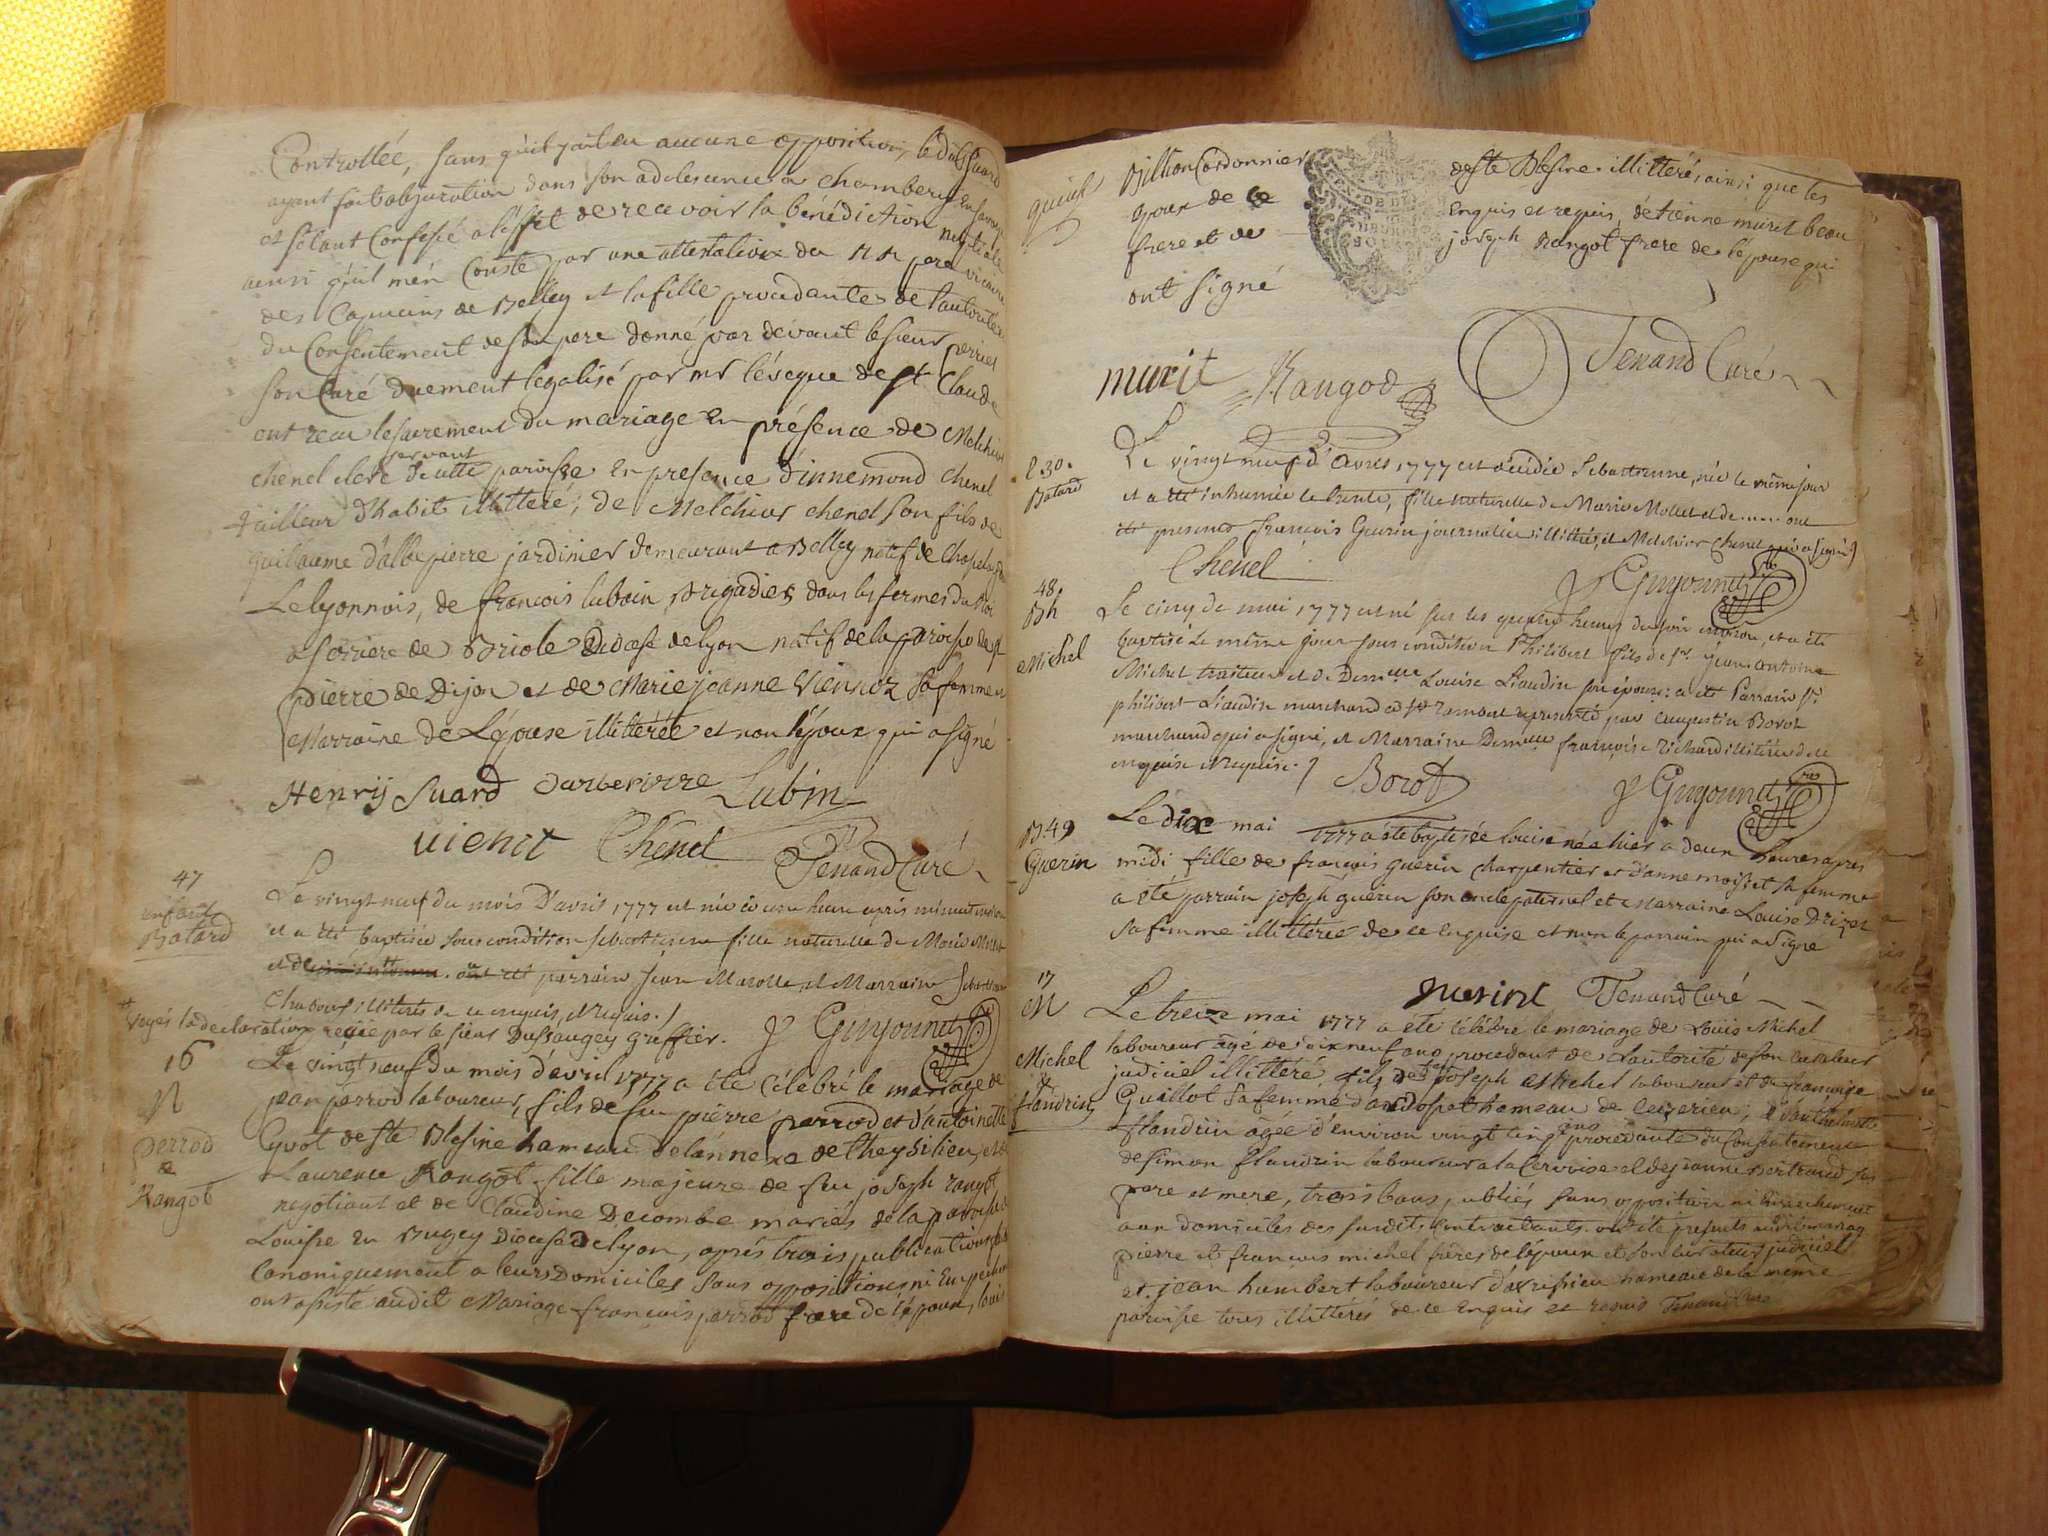 Controllée, sans qu'il y ait eu aucune opposition, ledit Suard
ayant fait abjuration dans son adolescence a chambery en savoye
et s'étant Confessé a l'effet de recevoir la bénédiction nuptiale
ainsi qu'il m'en Conste par une attestation du pere vicaire
des Capucins de Belley et la fille procedante de l'autorité
du Consentement de son pere donné par devant le sieur perrier
son Curé duement légalisé par mr l'éveque de st Claude
ont recu le sacrement du mariage En présence de Melchior
chenel clerc servant de cette paroisse En presence d'innemond chenel
tailleur d'habit illitteré, de Melchior chenel son fils de
guillaume d'albepierre jardinier demeurant a Belley natif de
Le lyonnois, de francois lubain Brigadier dans les fermes du Roi
a de Briole Diocese de lyon natif de la paroisse de st
pierre de Dijon et de Marie jeanne Viennot sa femme
Marraine de L'épouse illitterée et non l'époux qui a signé
Henrij Suard Darbepirre Lubin
vienot Chenel Tenand Curé
47
enfant
Batard
Le vingt neuf du mois D'avril 1777 est née a une heure après minuit
et a été baptisée sous condition sebastienne fille naturelle de Marie Mollet
et de ont été parrain Jean Marolle et Marraine
Chabout illiterés de ce enquis et requis.
voyés la declaration reçue par le sieur Dussaugey Greffier. Guyonnet
16
M
perrod
&
Rangot
Le vingt neuf Du mois d'avril 1777 a été Célébré le mariage de
jean perrod laboureur, fils de feu pierre perrod et d'antoinette
Gyvot de ste Blesine hameau de l'annexe de theysilieu, et de
Laurence Rangot fille majeure de feu joseph rangot
negotiant et de Claudine Decombe mariés de la paroisse de
Louisse En Bugey Diocese de lyon, après trois publications faites
Canoniquement a leurs Domiciles sans oppositions, ni Empechemens
ont assisté audit Mariage francois perrod frere de l'époux, louis
Billion Cordonnier de ste Blesine illitterés ainsi que les
époux de ce Enquis et requis, d'etienne muret beau
frere et de joseph Rangot frere de l'épouse qui
ont signé
murit Rangod Tenand Curé
230.
Batard
Le vingt neuf d'avril 1777 est décédée Sebastienne, née le même jour
et a été inhumée le trente, fille naturelle de Marie Mollet et de ...... ont
été presents François Guerin journalier illitéré, et Melchior Chenel qui a signé
Chenel Guyonnet
48
Bh
Michel
Le cinq de mai 1777 est né sur les quatre heures du soir environ, et a été
baptisé le même jour sous condition Philibert fils de Sr. Jean Antoine
Michel traiteur et de Demelle Louise Liaudin son épouse: a été Parrain Sr.
philibert Liaudin marchand à st Ramont représenté par Augustin Borot
marchand qui a signé, et Marraine Demelle françoise Richard illitérée de ce
enquise et requise. Borot Guyonnet
B 49
Guerin
Le dix mai 1777 a été baptisée louise née hier a deux heures apres
midi fille de françois guerin charpentier et d'anne moisset sa femme
a été parrain joseph guerin son oncle paternel et Marraine Louise Drizet
sa femme illitterée de ce Enquise et non le parrain qui a signé
guerint Tenand Curé
17
M
Michel
&
flandrin
Le treize mai 1777 a été célébré le mariage de Louis Michel
laboureur agé de dix neuf ans procedant de l'autorité de son curateur
judiciel illittéré, fils de feu joseph Michel laboureur et de françoise
Guillot sa femme d'ardosset hameau de Ceyzerieu, et d'anthelmette
flandrin agée d'environ vingt cinq ans procedante du Consentement
de Simon flandrin laboureur a la Cervoise et de jeanne Bertrand ses
pere et mere, trois bans publiés sans opposition ni Empechement
aux domiciles des susdits Contractants. ont été presents audit mariage
pierre et françois michel freres de l'époux et son curateur judiciel
et jean humbert laboureur d'avressieu hameau de la même
paroisse tous illittérés de ce Enquis et requis Tenand Curé